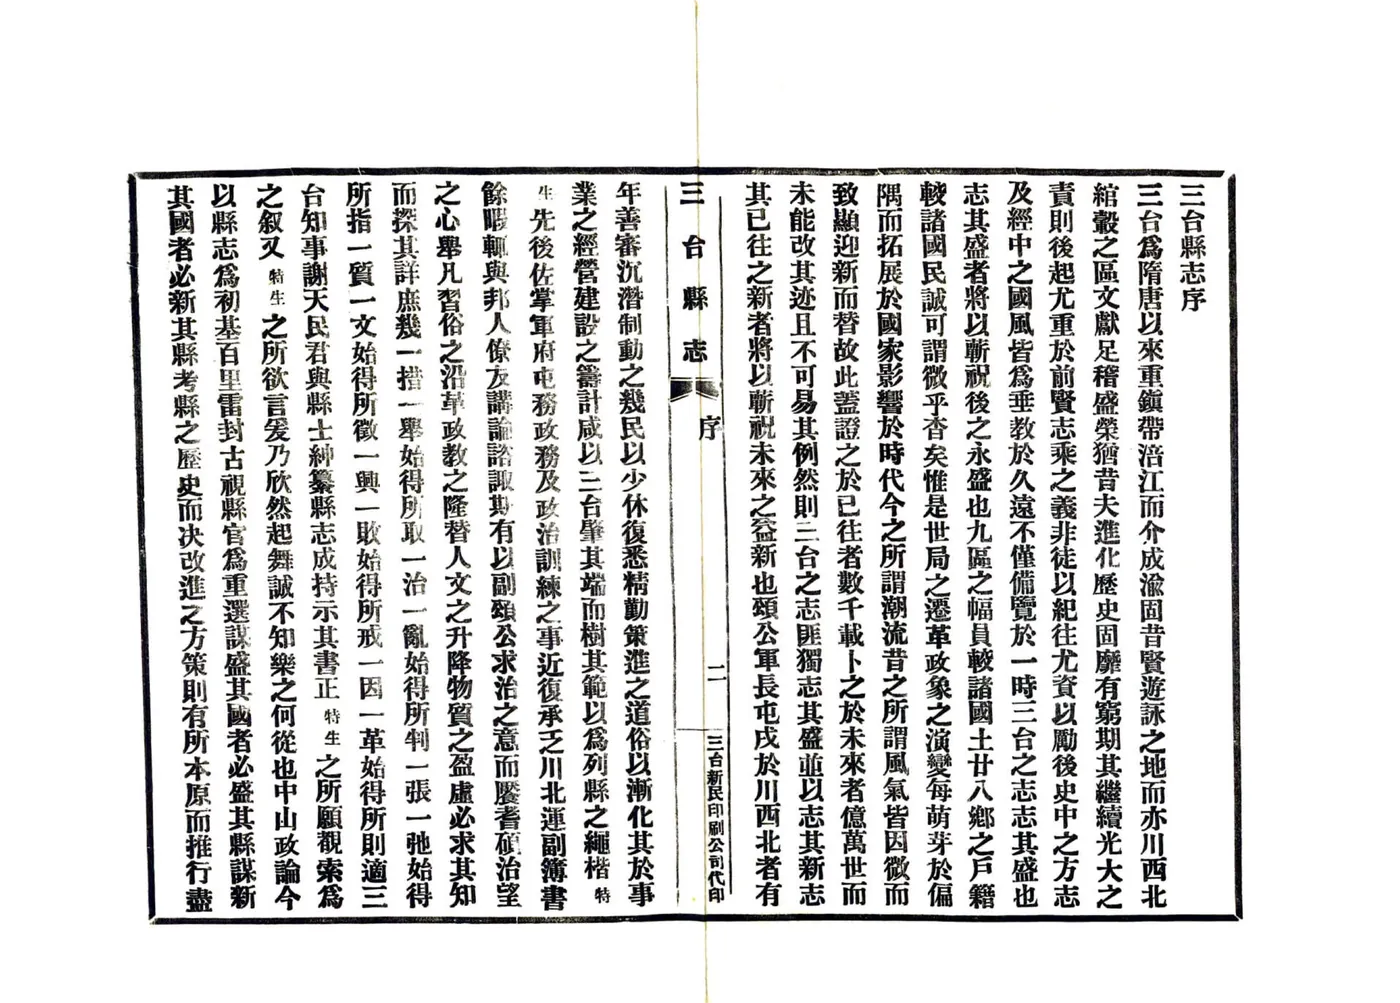 三台縣志序
三台爲隋唐以來重鎭帶涪江而介成渝固昔賢遊詠之地而亦川西北
綰轂之區文獻足稽盛榮猶昔夫進化歷史固靡有窮期其繼續光大之
責則後起尤重於前賢志乘之義非徒以紀往尤資以勵後史中之方志
及經中之國風皆爲垂教於久遠不僅備覽於一時三台之志志其盛也
志其盛者將以蘄祝後之永盛也九區之幅員較諸國土廿八鄉之戶籍
較諸國民誠可謂微乎杳矣惟是世局之遷革政象之演變每萌芽於偏
隅而拓展於國家影響於時代今之所謂潮流昔之所謂風氣皆因微而
致顯迎新而替故此蓋證之於已往者數千載卜之於未來者億萬世而
未能改其迹且不可易其例然則三台之志匪獨志其盛並以志其新志
其已往之新者將以蘄祝未來之益新也頌公軍長屯戍於川西北者有
三台縣志
序
二
三台新民印刷公司代印
年善審沉潛制動之幾民以少休復悉精勤策進之道俗以漸化其於事
業之經營建設之籌計咸以三台肇其端而樹其範以爲列縣之繩楷特
生先後佐掌軍府屯務政務及政治訓練之事近復承乏川北運副簿書
餘暇輒與邦人僚友講論諮諏期有以副頌公求治之意而饜耆碩治望
之心舉凡習俗之沿革政教之隆替人文之升降物質之盈虛必求其知
而探其詳庶幾一措一舉始得所取一治一亂始得所判一張一弛始得
所指一質一文始得所徵一興一敗始得所戒一因一革始得所則適三
台知事謝天民君與縣士紳纂縣志成持示其書正特生之所願觀索爲
之叙又特生之所欲言爰乃欣然起舞誠不知樂之何從也中山政論今
以縣志爲初基百里雷封古視縣官爲重選謀盛其國者必盛其縣謀新
其國者必新其縣考縣之歷史而决改進之方策則有所本原而推行盡